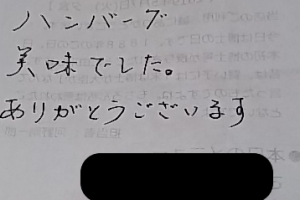 ハンバーグ
美味でした。
ありがとうございます